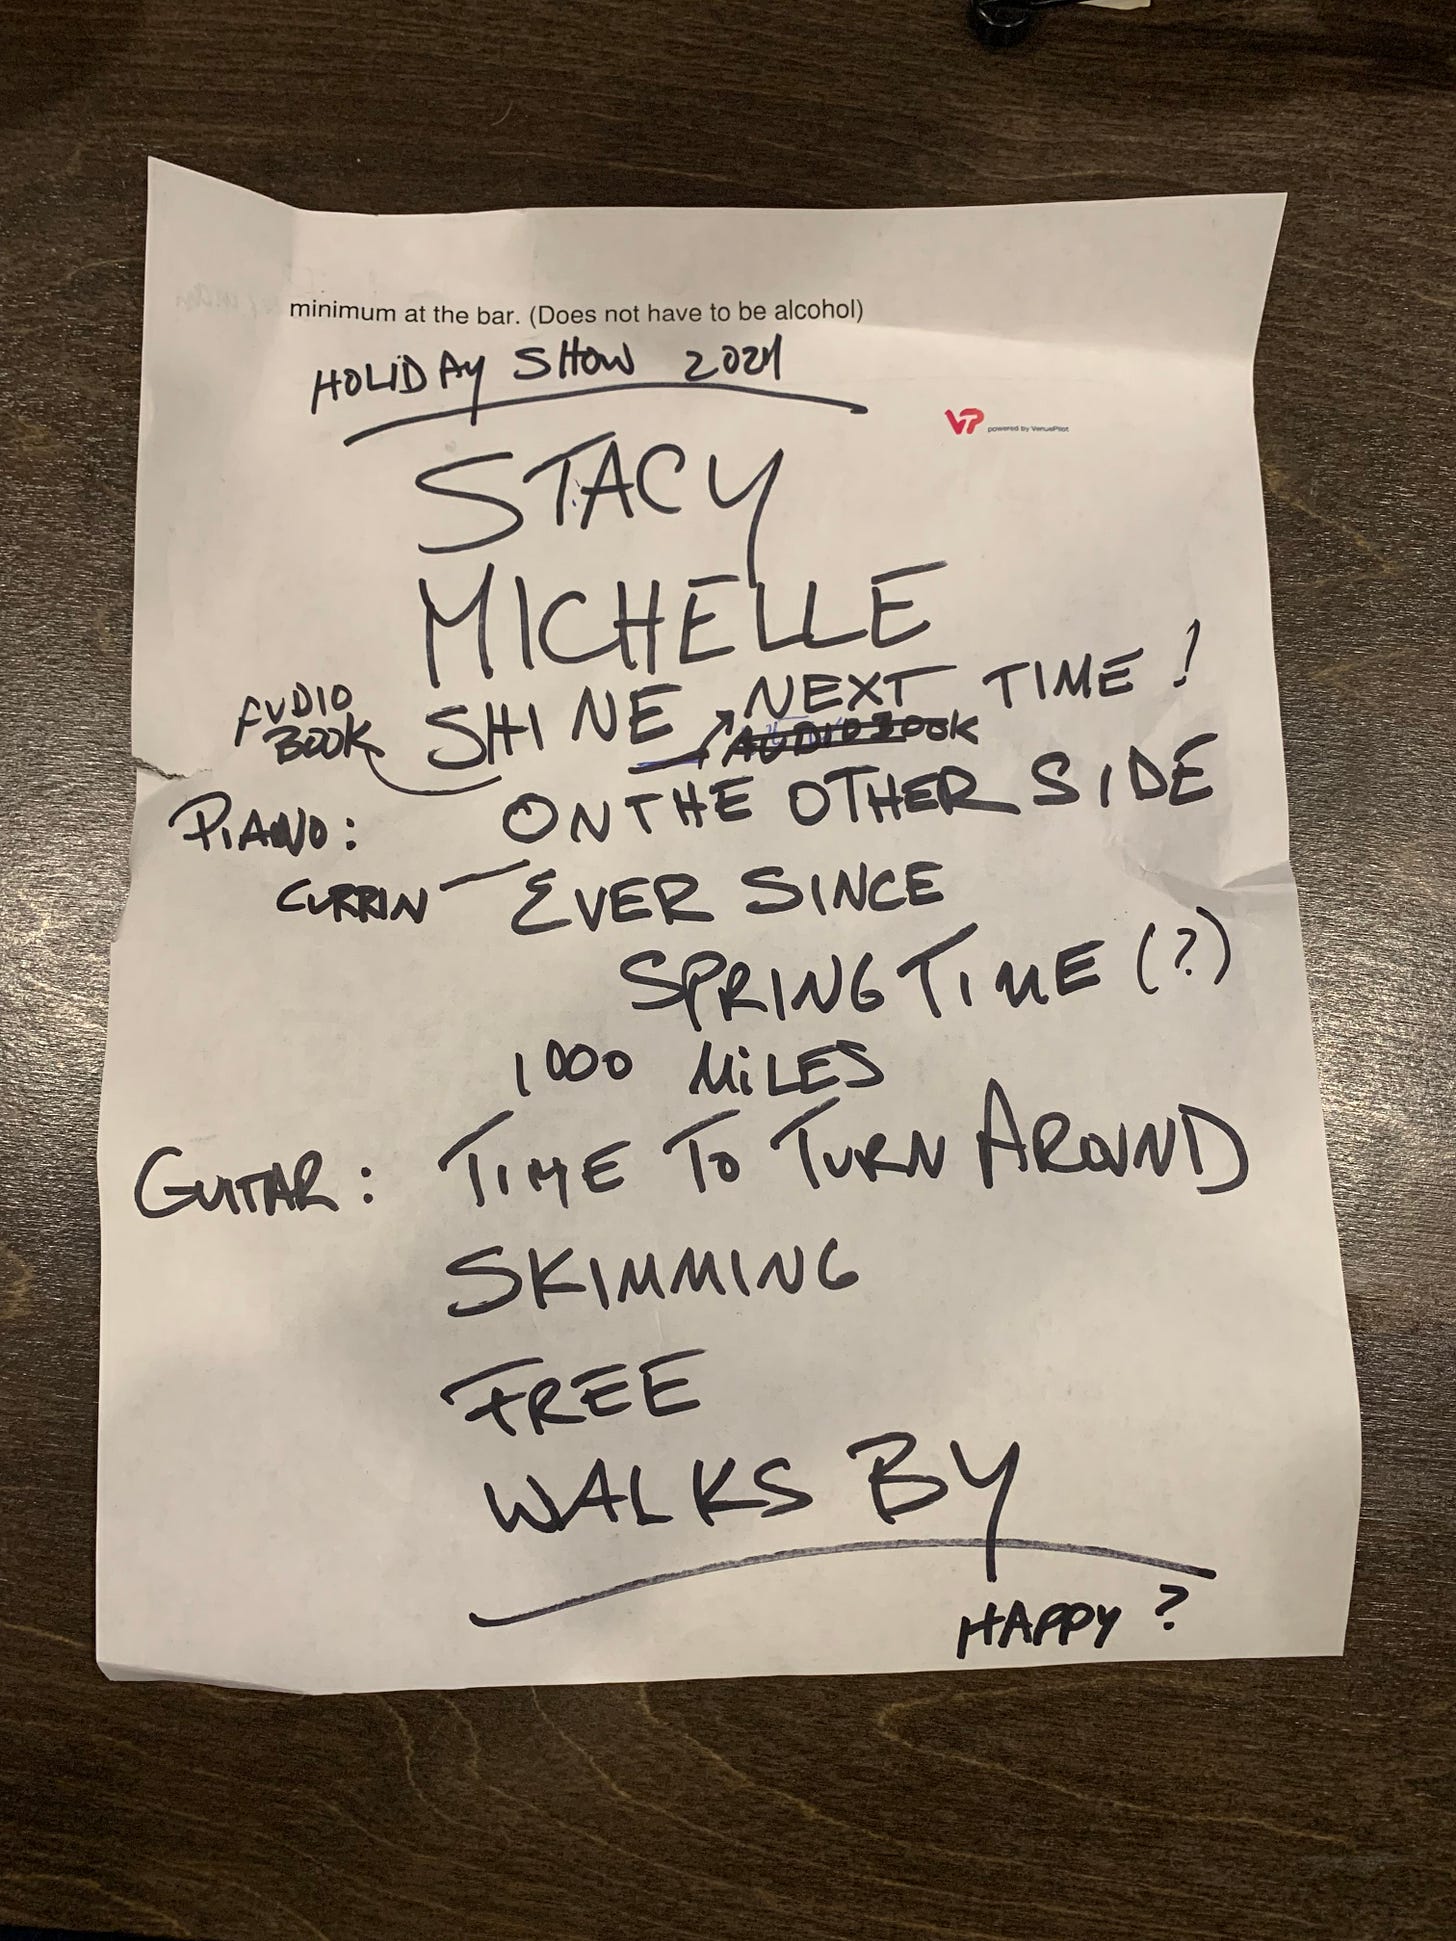 minimum at the bar. (Does not have to be alcohol)
HOLIDAY SHOW 2024
VP powered by VenuePilot
STACY
MICHELLE
AUDIO
BOOK
SHINE NEXT TIME!
AUDIOBOOK
PIANO: ON THE OTHER SIDE
CURRIN — EVER SINCE
SPRINGTIME (?)
1000 MILES
GUITAR: TIME TO TURN AROUND
SKIMMING
FREE
WALKS BY
HAPPY?